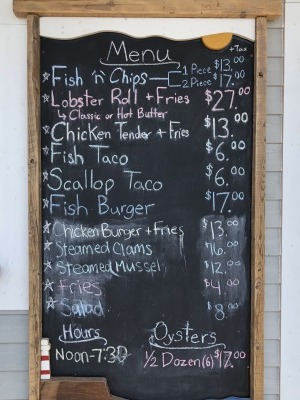 Menu
+Tax
☆ Fish 'n' Chips — 1 Piece $13.00
2 Piece $17.00
☆ Lobster Roll + Fries $27.00
↳ Classic or Hot Butter
☆ Chicken Tender + Fries $13.00
☆ Fish Taco $6.00
☆ Scallop Taco $6.00
☆ Fish Burger $17.00
☆ Chicken Burger + Fries $13.00
☆ Steamed Clams 16.00
☆ Steamed Mussel $12.00
☆ Fries $4.00
☆ Salad 8.00
Hours
Noon-7:30
Oysters
1/2 Dozen (6) $17.00